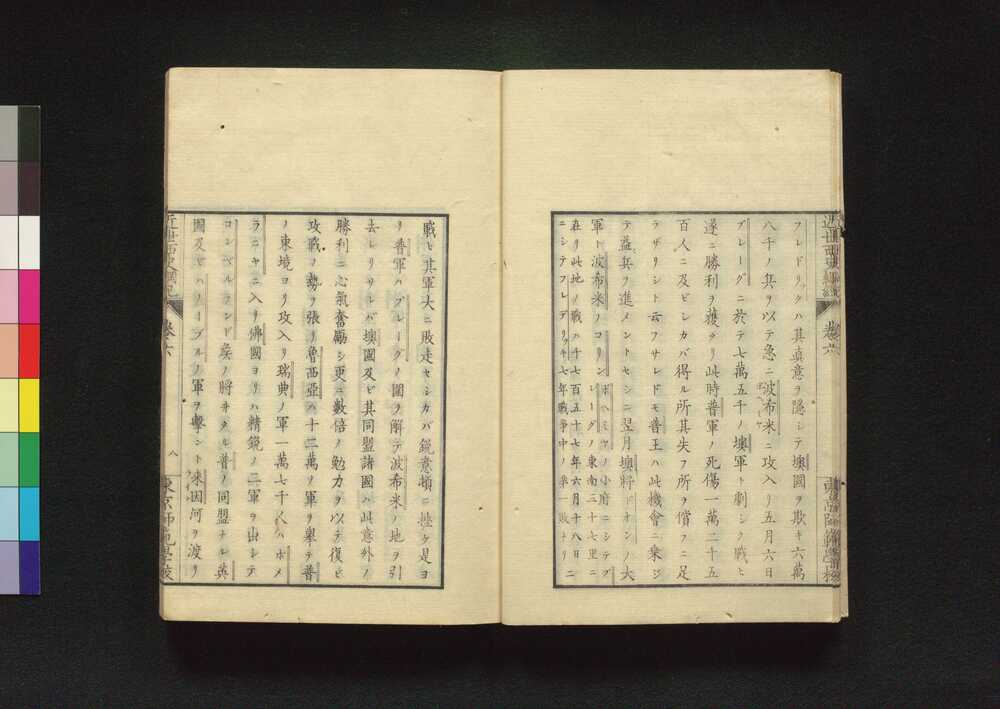 フレドリックハ其眞意ヲ隱シテ墺國ヲ欺キ六萬
八千ノ兵ヲ以テ急ニ波布米ニ攻入リ五月六日
プレーグニ於テ七萬五千ノ墺軍ト劇シク戰ヒ
遂ニ勝利ヲ獲タリ此時普軍ノ死傷一萬二千五
百人ニ及ビシカバ得ル所其失フ所ヲ償フニ足
ラザリシト云フサレドモ普王ハ此機會ニ乘ジ
テ益兵ヲ進メントセシニ翌月墺將ドオンノ大
軍ト波布米ノコリン
ボヘミヤノ小府ニシテプ
レーグノ東南三十七里ニ
在リ此地ノ戰ハ千七百五十七年六月十八日ニ
ニシテフレデリッキ七年戰爭中ノ第一敗ナリ
近世西史綱紀 卷六
戰ヒ其軍大ニ敗走セシカバ銳意頓ニ挫ケ是ヨ
リ普軍ハプレーグノ圍ヲ解テ波布米ノ地ヲ引
去レリサレバ墺國及ビ其同盟諸國ハ此意外ノ
勝利ニ心氣奮勵シ更ニ數倍ノ勉力ヲ以テ復ビ
攻戰ノ勢ヲ張リ魯西亞ハ十二萬ノ軍ヲ擧テ普
ノ東境ヨリ攻入リ瑞典ノ軍一萬七千人ハポメ
ラニヤニ入リ佛國ヨリハ精銳ノ二軍ヲ出シテ
コンベルランド矦ノ將ヰタル普ノ同盟ナレ英
國及ビハノーブルノ軍ヲ擊ント來因河ヲ渡リ
近世西史綱紀 卷六 八 東京師範學校